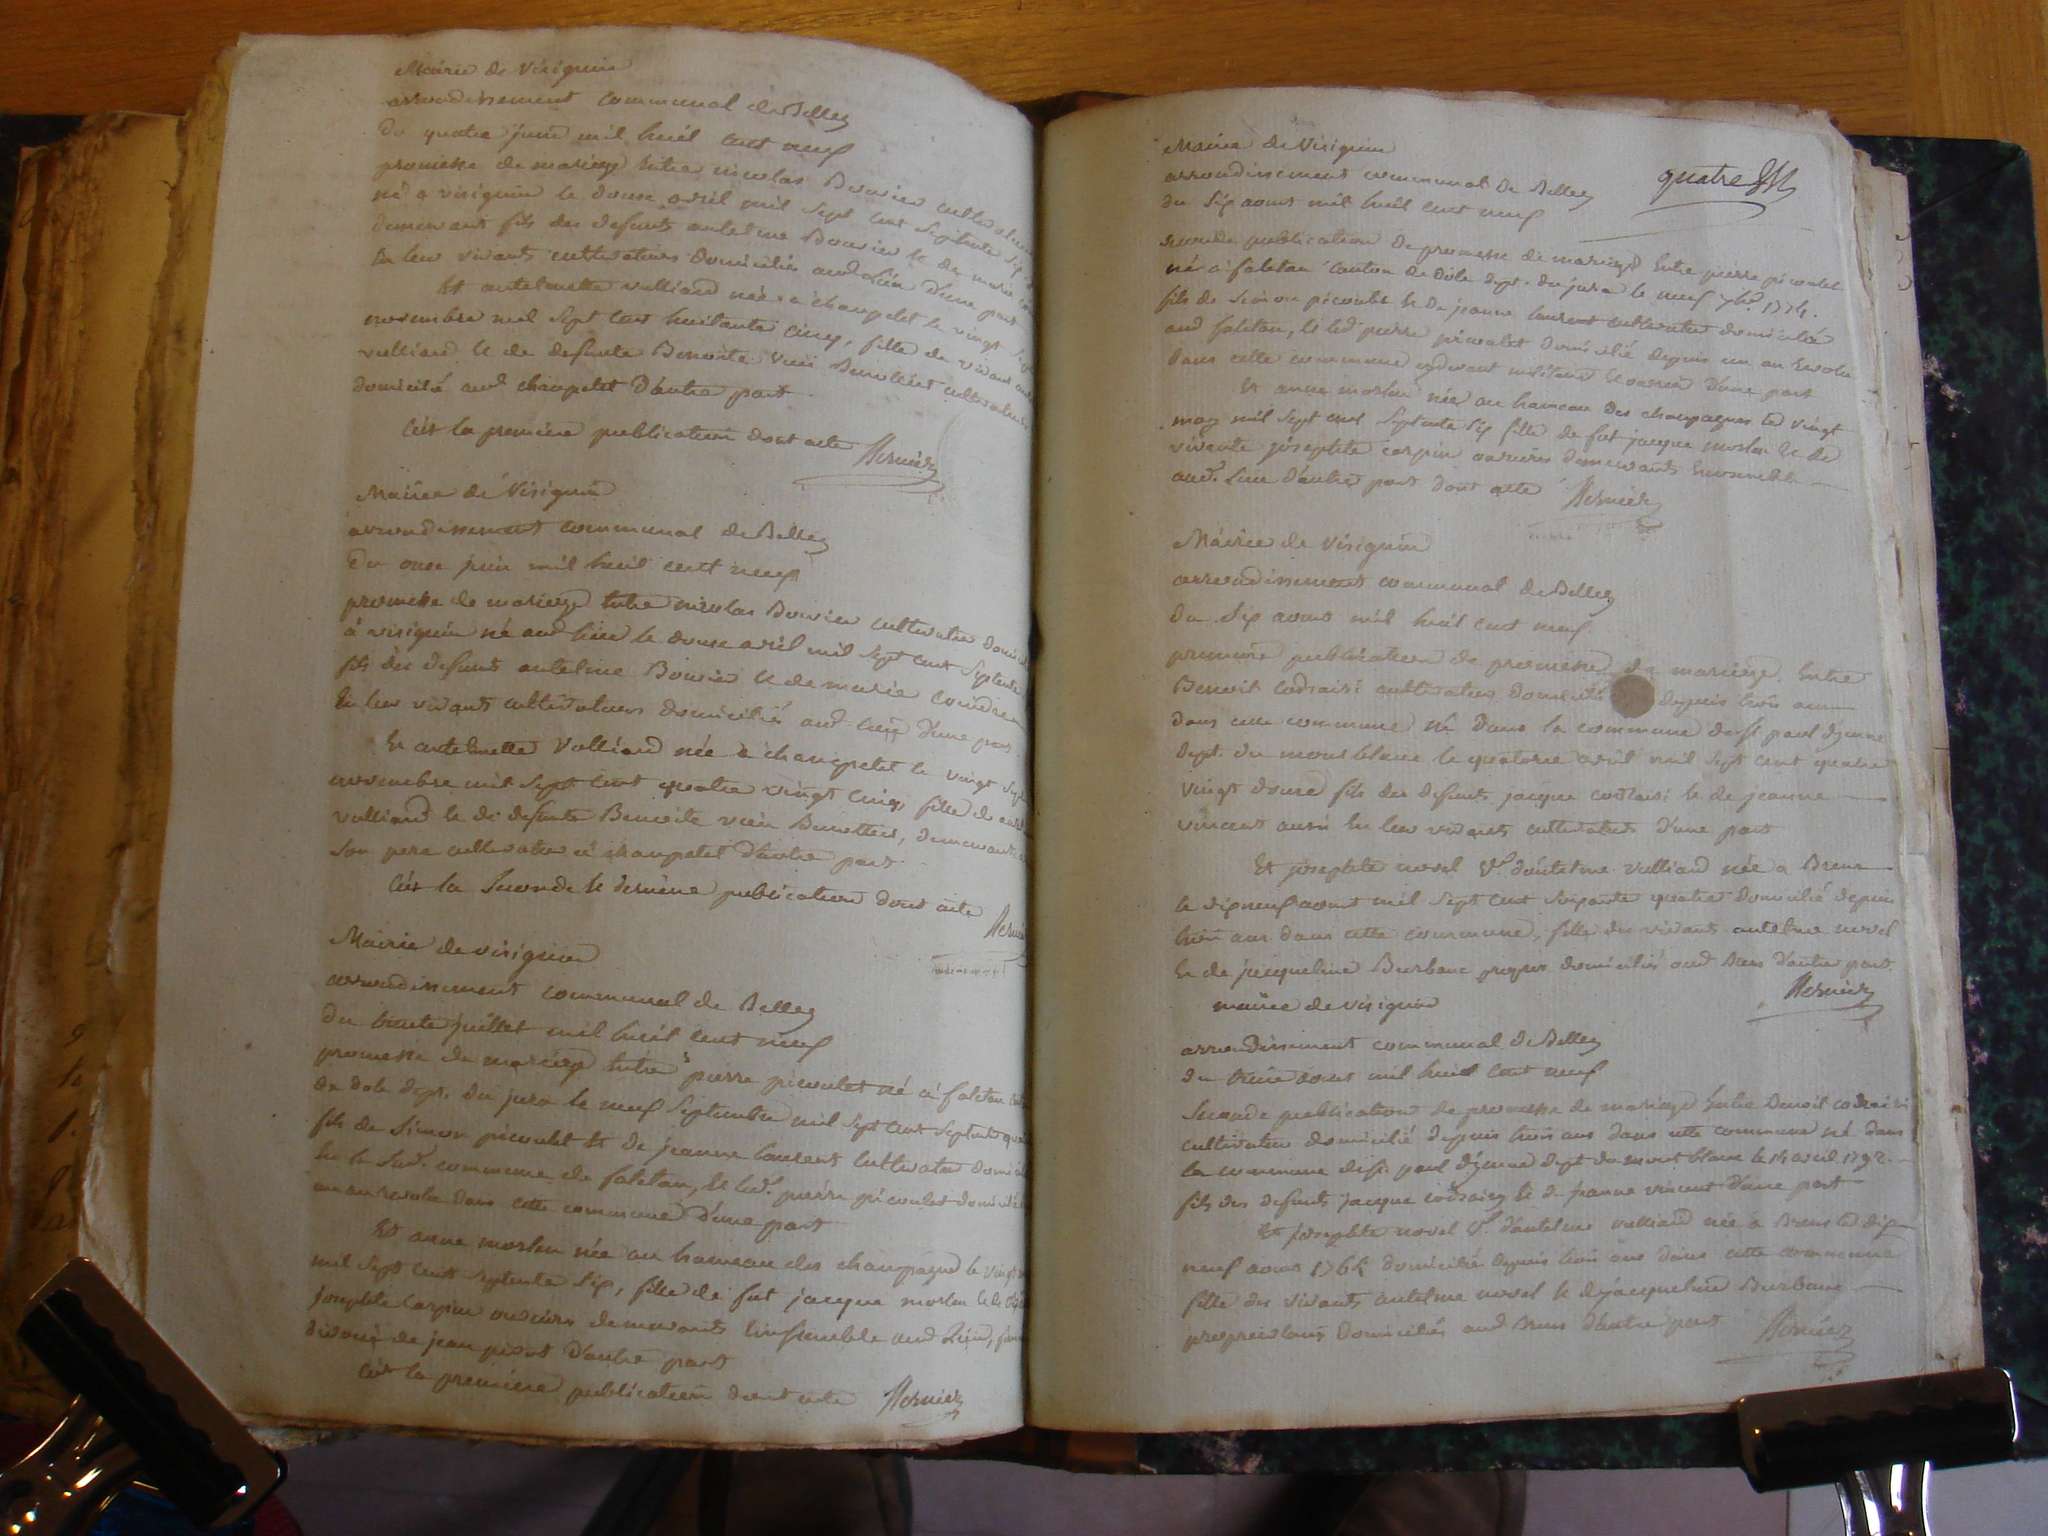 Mairie de Virignin
arrondissement communal de Belley
du quatre juin mil huit cent neuf
promesse de mariage entre nicolas Bouvier cultivateur
né a virignin le douze avril mil sept cent septente six
demeurant fils des defunts antelme Bouvier et de marie
en leur vivants cultivateurs domiciliés aud. Lieu d'une part
Et antelmette vulliand née a champetel le vingt sept
novembre mil sept cent huitante cinq, fille de vivant
vulliand et de defunte Benoite cultivateur
domicilié aud champetel d'autre part
C'est la premiere publication dont acte Mernier
Mairie de Virignin
arrondissement communal de Belley
Du onze juin mil huit cent neuf
promesse de mariage entre nicolas Bouvier cultivateur
à virignin né aud lieu le douze avril mil sept cent septente
fils des defunts antelme Bouvier et de marie
En leur vivants cultivateurs domiciliés aud. Lieu d'une part
Et antelmette Vulliand née à champetel le vingt sept
novembre mil sept cent quatre vingt cinq, fille de
vulliand et de defunte Benoite demeurant
son pere cultivateur à champetel d'autre part
C'est la Seconde et derniere publication dont acte
Mairie de virignin
arrondissement communal de Belley
du trente juillet mil huit cent neuf
promesse de mariage entre pierre picoulet né à faletan
de dole dept. du jura le neuf septembre mil sept cent septente
fils de Simon picoulet et de jeanne laurent cultivateur
en la Sud. commune de faletan, et led. pierre picoulet domicilié
un an revolu dans cette commune d'une part
Et anne morlon née au hameau des champagne le vingt
mil sept cent septente six, fille de fut jacque morlon et de
josephte carpin ouvriers demeurants ensemble aud Lieu,
divorcé de jean d'autre part
C'est la premiere publication dont acte Mernier
quatre
Mairie de Virignin
arrondissement communal de Belley
du six aoust mil huit cent neuf
seconde publication de promesse de mariage entre pierre picoulet
né a faletan canton de dole dept. du jura le neuf 7bre. 1774.
fils de Simon picoulet et de jeanne laurent cultivateur domicilié
aud faletan, et led pierre picoulet domicilié depuis un an revolu
dans cette commune cydevant d'une part
Et anne morlon née au hameau des champagnes le vingt
may mil sept cent septente six fille de fut jacque morlon et de
vivante josephte carpin ouvriers demeurants ensemble
aud. Lieu d'autre part dont acte Mernier
Mairie de virignin
arrondissement communal de Belley
du Six aoust mil huit cent neuf
premiere publication de promesse de mariage Entre
Benoit cultivateur domicilié depuis trois ans
dans cette commune né dans la commune de st paul
dept. du mont blanc le quatorze avril mil sept cent quatre
vingt douze fils des defunts jacque et de jeanne
vincent aussi en leur vivants cultivateurs d'une part
Et josephte novel Ve. d'antelme vulliand née a Brens
le dix neuf aoust mil sept cent soixante quatre domicilié depuis
trois ans dans cette commune, fille des vivants antelme novel
et de jacqueline Burbanc domiciliés aud Brens d'autre part.
Mernier
mairie de virignin
arrondissement communal de Belley
du treize aoust mil huit cent neuf
Seconde publication de promesse de mariage entre Benoit
cultivateur domicilié depuis trois ans dans cette commune né dans
la commune de st. paul dept du mont blanc le 14 avril 1792.
fils des defunts jacque et de jeanne vincent d'une part
Et josephte novel Ve. d'antelme vulliand née à Brens le dix
neuf aoust 1764 domicilié depuis trois ans dans cette commune
fille des vivants antelme novel et de jacqueline Burbanc
propriétaires domiciliés aud Brens d'autre part Mernier